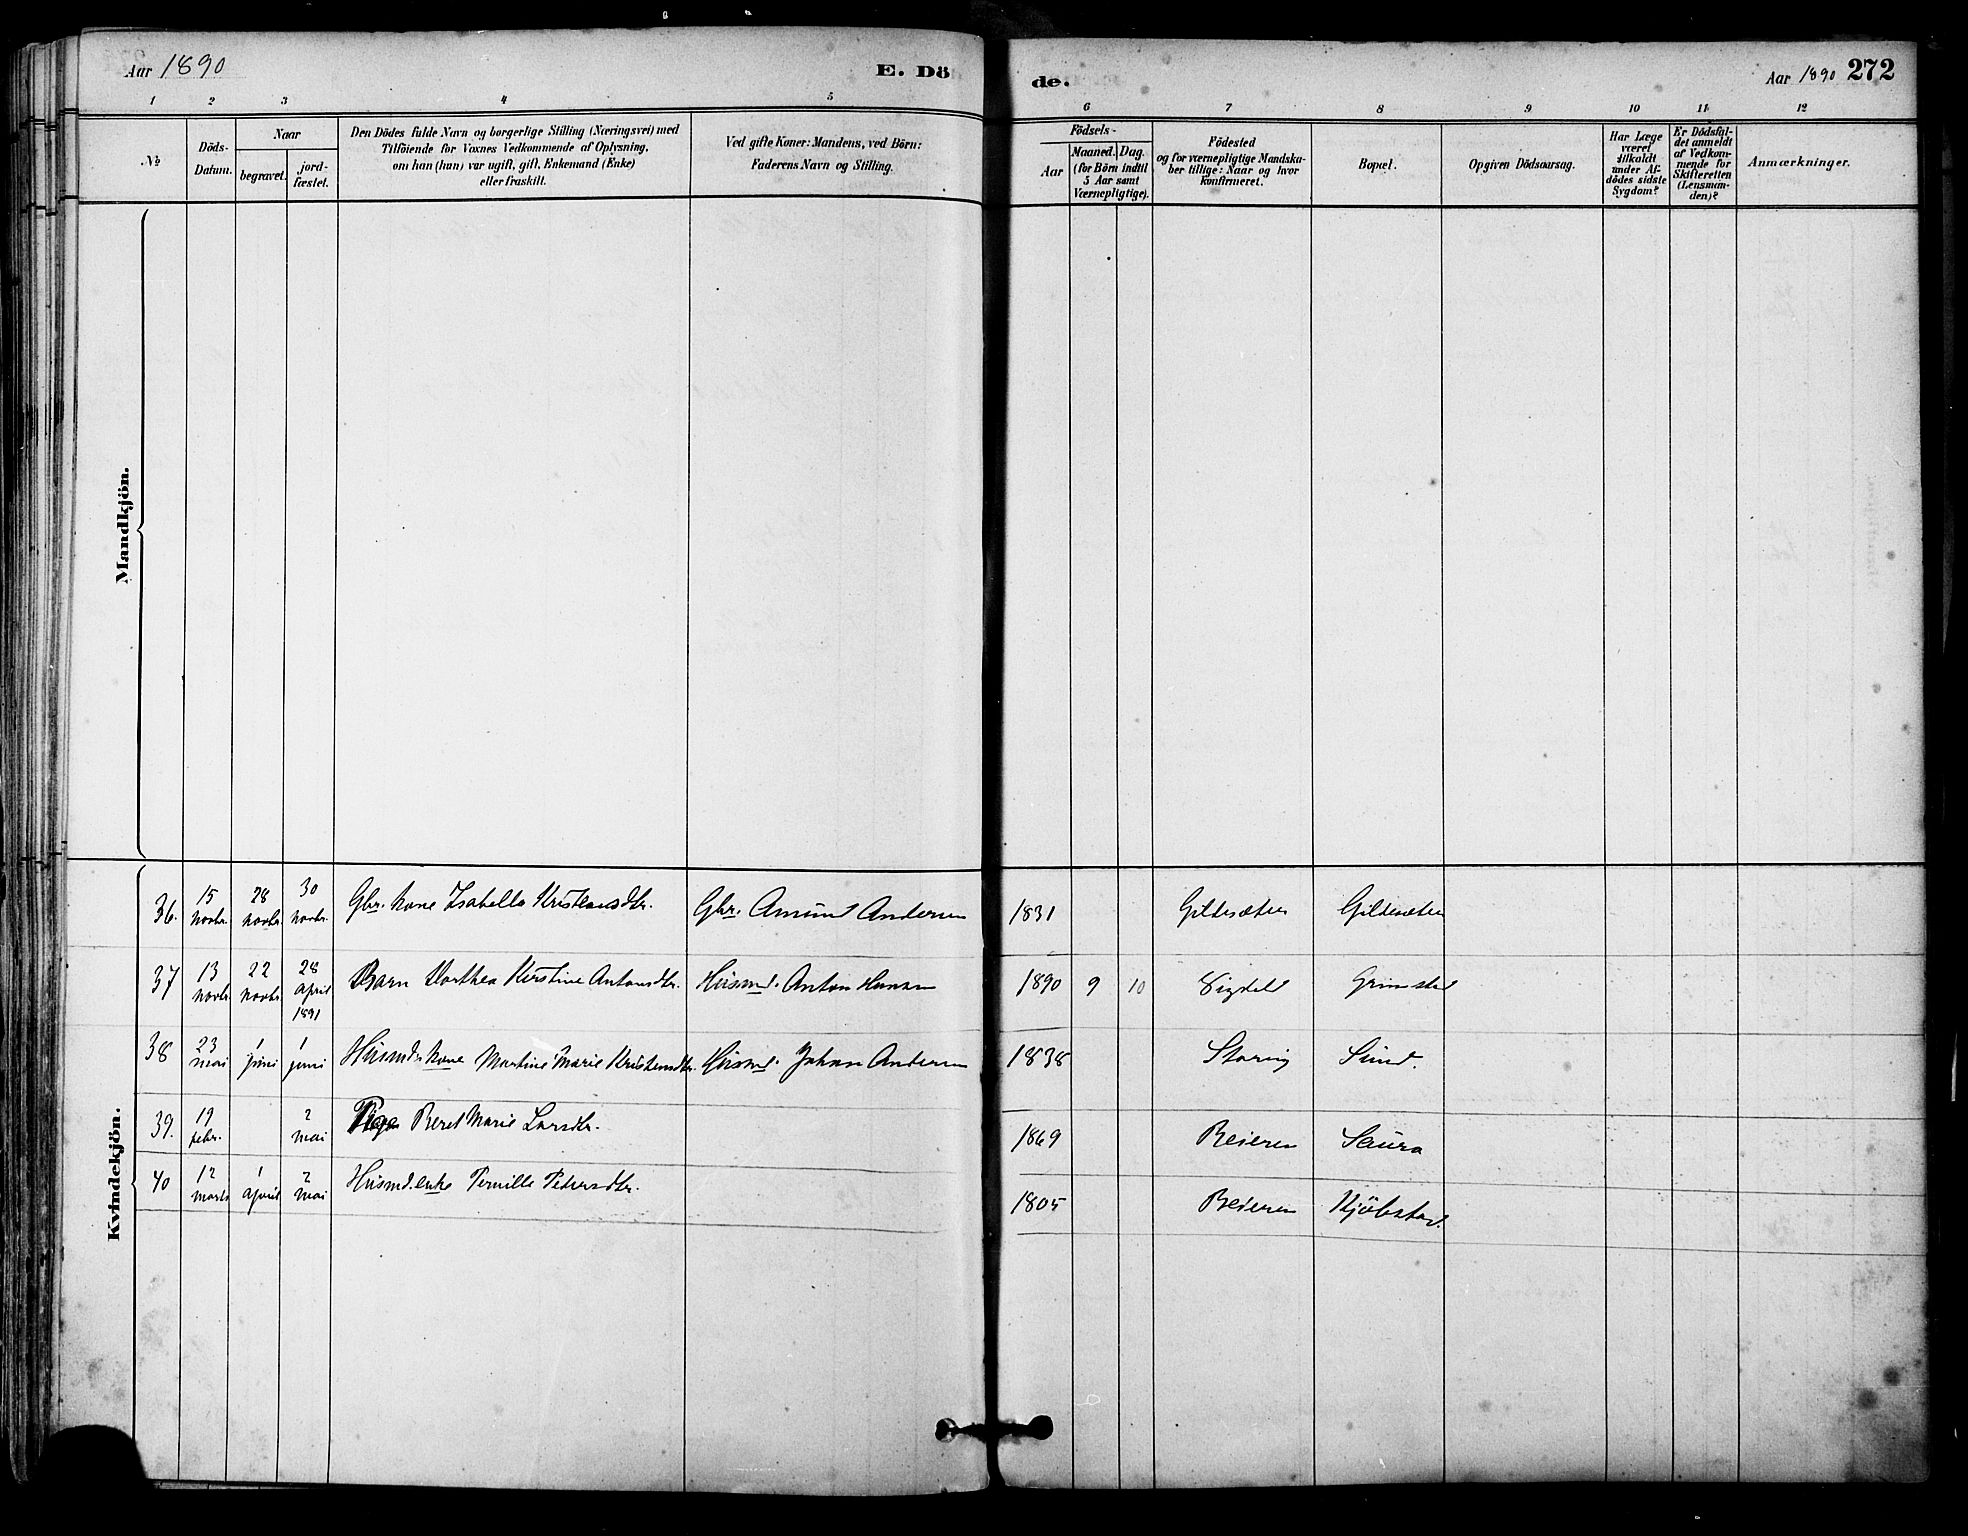 Aar 1890
E. Dö
de.
Aar 1890 272
1 2 3 4 5 6 7 8 9 10 11 12
No
Döds-
Datum.
Naar
begravet.
jord-
fæstet.
Den Dödes fulde Navn og borgerlige Stilling (Næringsvei) med
Tilföiende for Voxnes Vedkommende af Oplysning,
om han (hun) var ugift, gift, Enkemand (Enke)
eller fraskilt.
Ved gifte Koner: Mandens, ved Börn:
Faderens Navn og Stilling.
Födsels-
Aar
Maaned. Dag.
(for Börn indtil
5 Aar samt
Værnepligtige).
Födested
og for værnepligtige Mandska-
ber tillige: Naar og hvor
konfirmeret.
Bopæl.
Opgiven Dödsaarsag.
Har Læge
været
tilkaldt
under Af-
dödes sidste
Sygdom?
Er Dödsfal-
det anmeldt
af Vedkom-
mende for
Skifteretten
(Lensman-
den)?
Anmærkninger.
Mandkjön.
Kvindekjön.
36. 15 novbr. 28 novbr. 30 novbr. Gbr. kone Isabella Kristensdtr. Gbr. Amund Andersen 1831 Gildesæteren Gildesæteren
37 13 novbr. 22 novbr. 28 april 1891 Barn Dorthea Kirstine Antonsdtr. Husmd. Anton Hansen 1890 9 10 Grimstad
38 23 mai 1 juni 1 juni Husmds kone Martine Marie Kristensdtr. Husmd. Johan Andersen 1838 Storvig Sund.
39. 19 febr. 2 mai Pige Beret Marie Larsdtr. 1869 Beieren Saura
40 12 marts 1 april 2 mai Husmd. enke Pernille Pedersdtr. 1805 Beieren Kjöbstad.